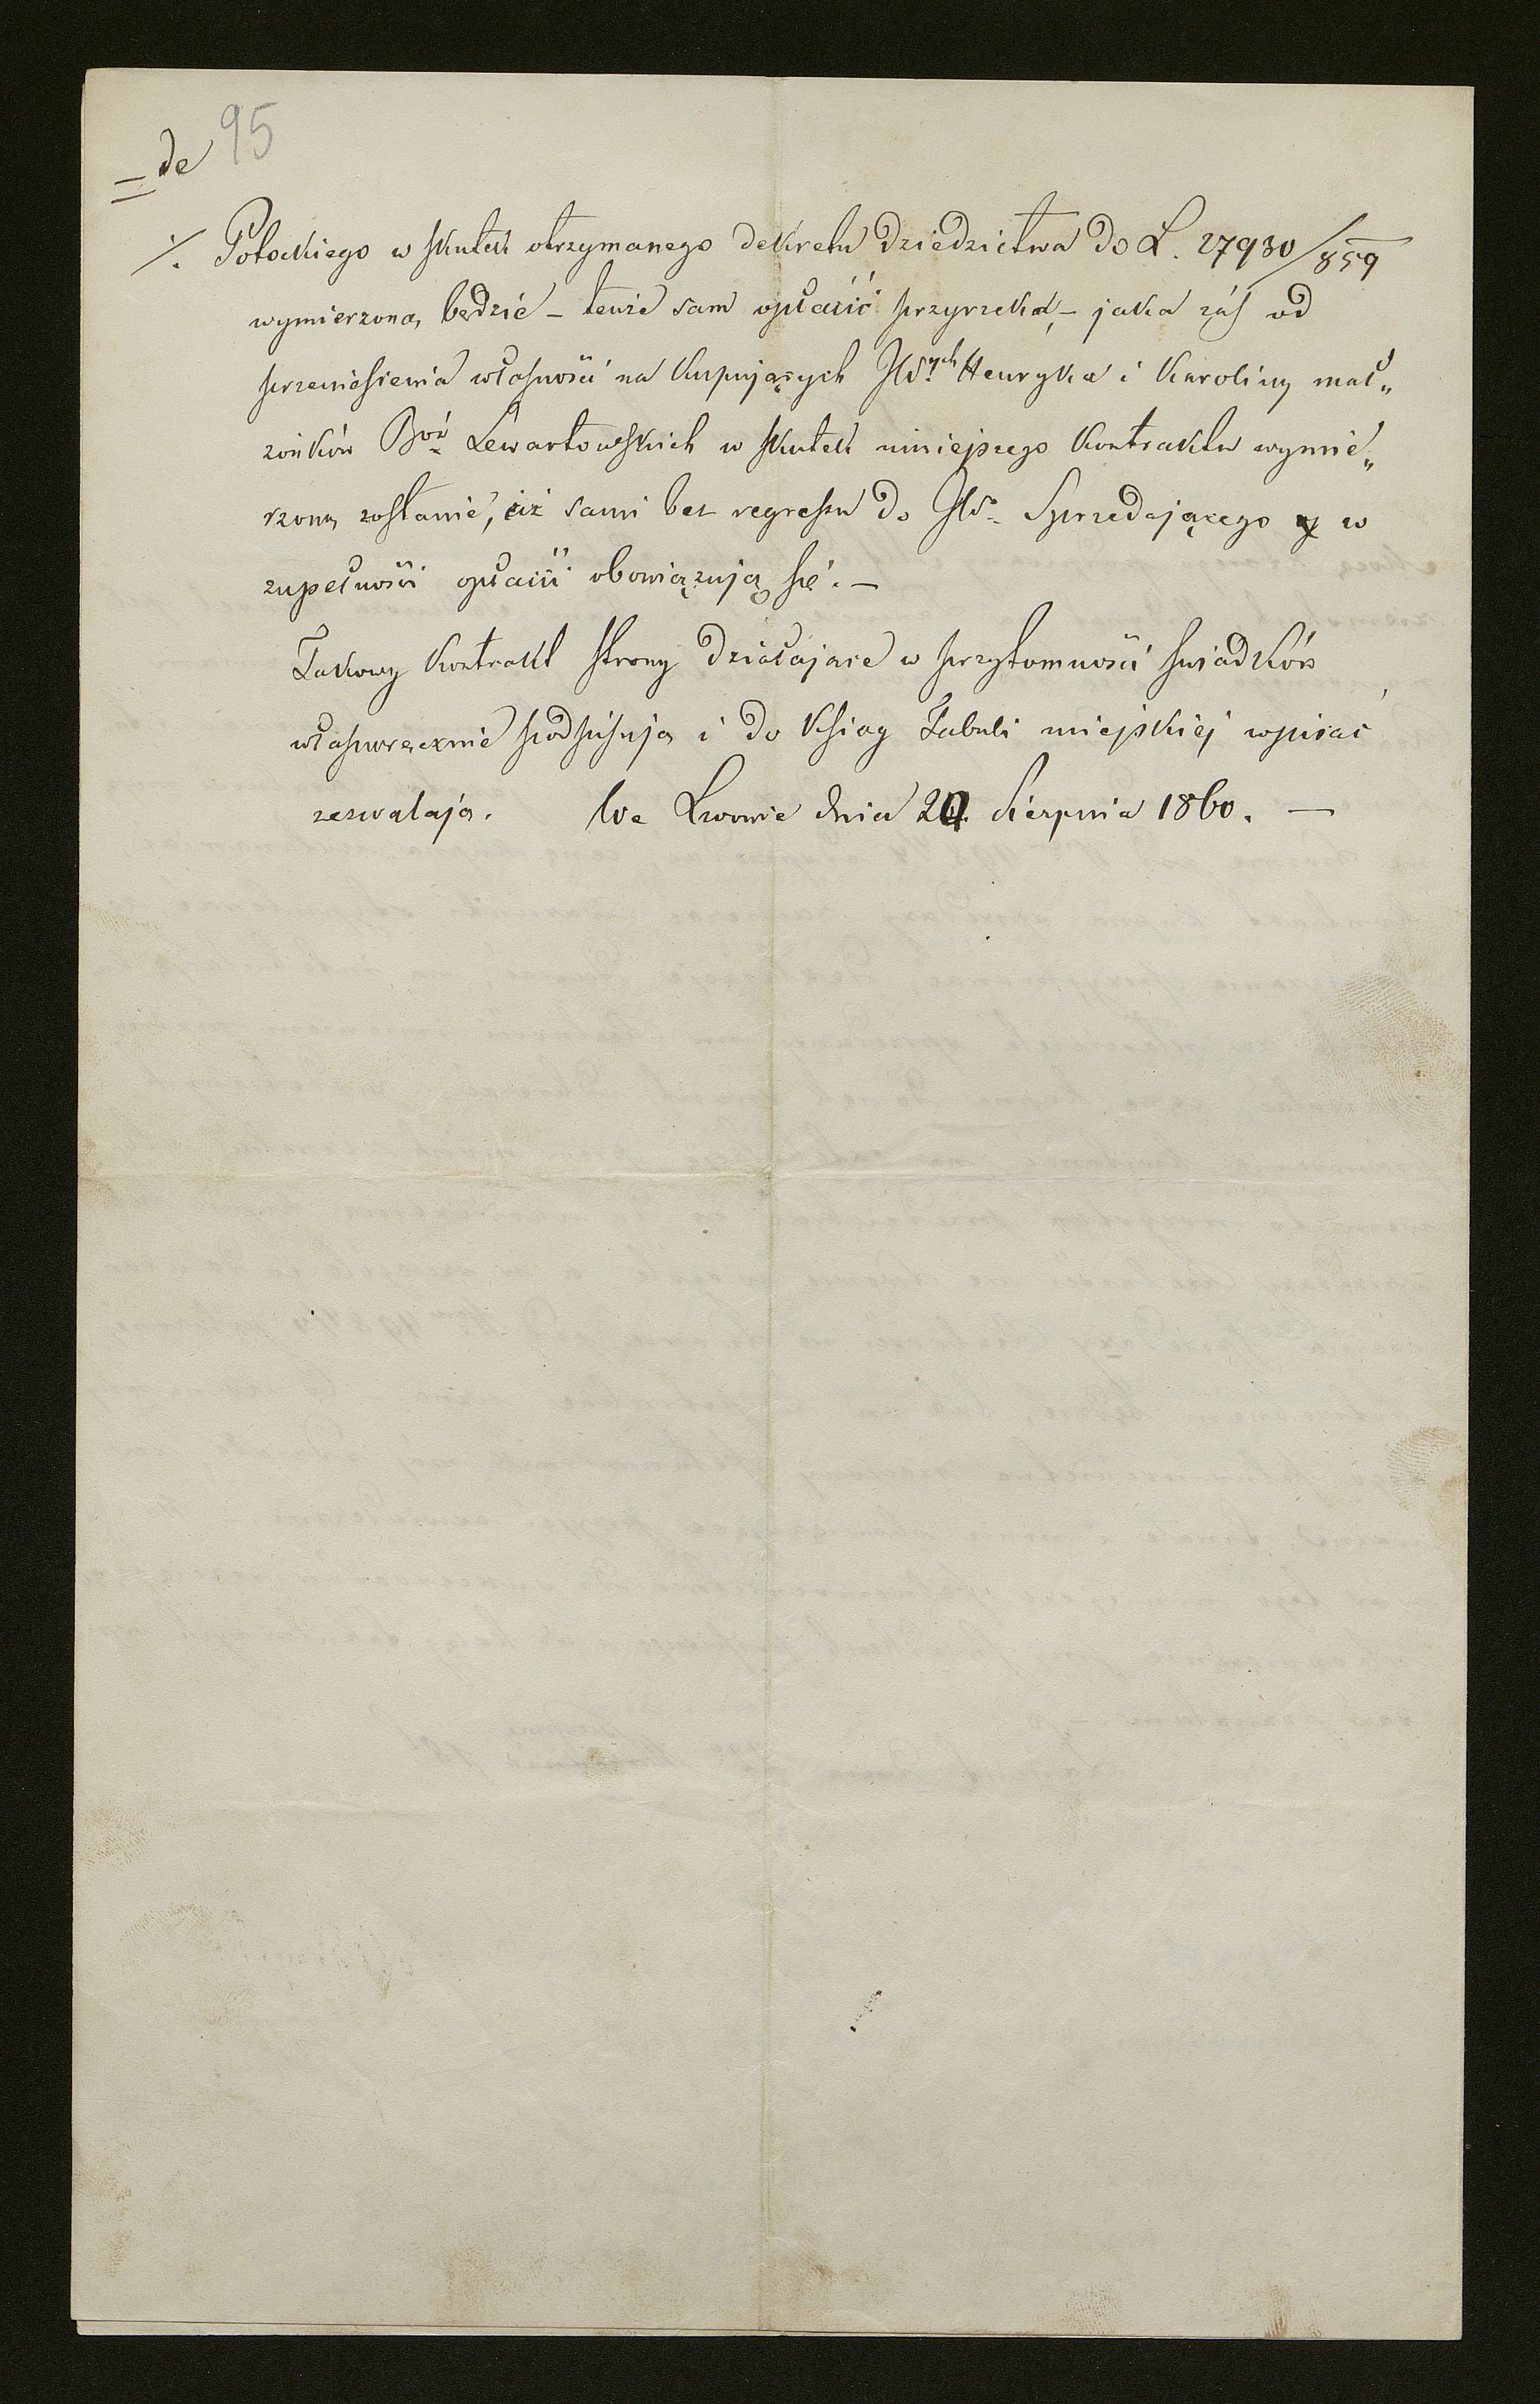 = de 95
·/. Potockiego w skutek otrzymanego dekretu dziedzictwa do L. 27930/859
wymierzoną będzie – tenże sam opłacić przyrzeka, – jaka zaś od
przeniesienia własności na kupujących JW.ych Henryka i Karoliny mał„
żonków Bon Lewartowskich w skutek niniejszego kontraktu wymie„
rzoną zostanie, ciż sami bez regressu do JWo Sprzedającego w
zupełności opłacić obowiązują się. –
Takowy kontrakt strony działające w przytomności świadków
własnoręcznie podpisują i do ksiąg Tabuli miejskiej wpisać
zezwalają. We Lwowie dnia 24 Sierpnia 1860. –